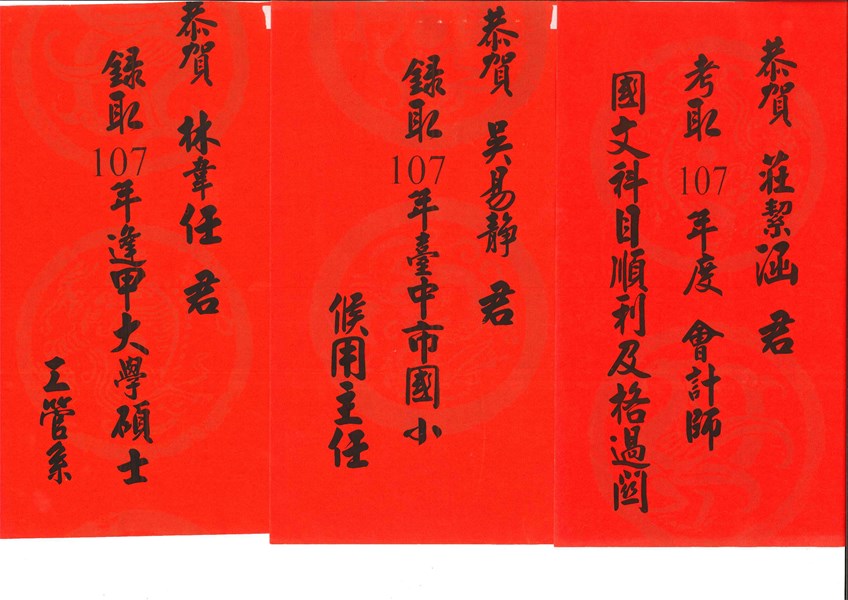 恭賀 莊絜涵 君
考取 107 年度 會計師
國文科目順利及格過關
恭賀 吳易靜 君
錄取 107 年臺中市國小
候用主任
恭賀 林韋任 君
錄取 107 年逢甲大學碩士
工管系